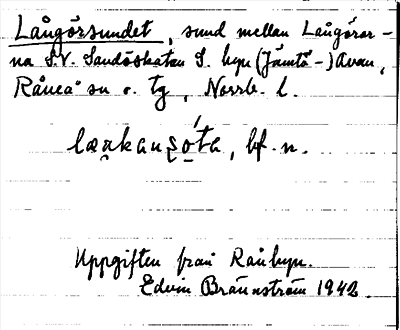 Långörsundet, sund mellan Långörar-
na S.V. Sandöskatan S. byn (Jämtö-) Avan,
Råneå sn o. tg, Norrb. l.
Uppgiften från Rånbyn.
Edvin Brännström 1942.